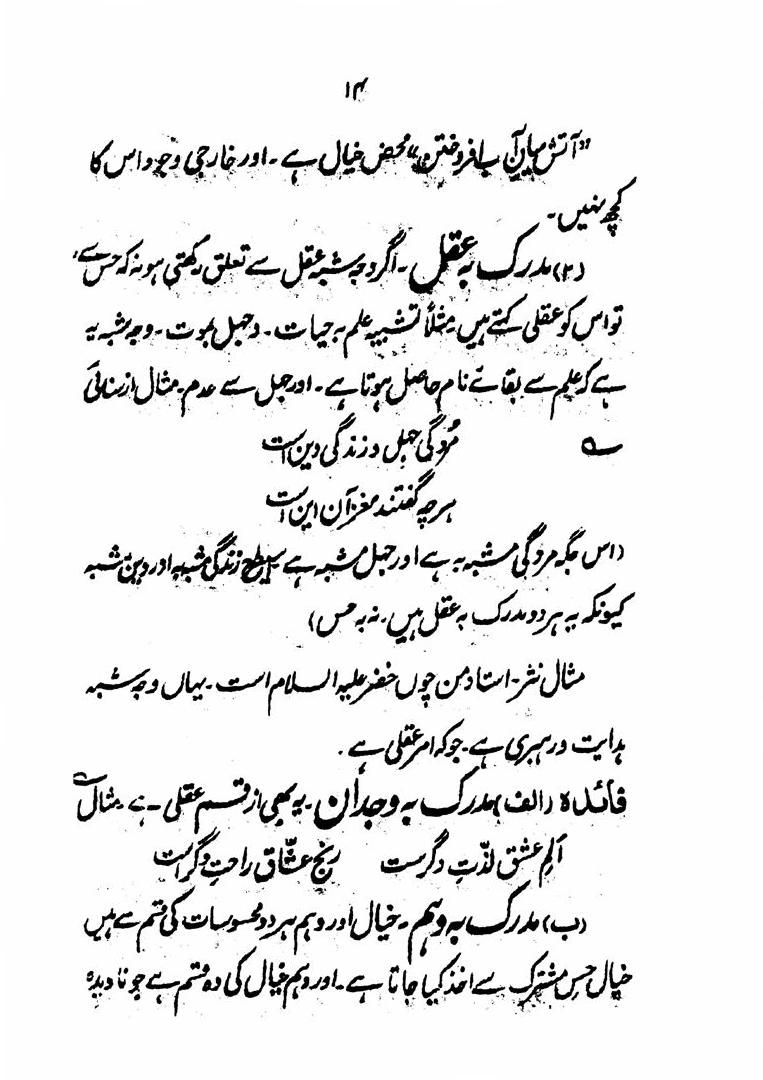 ۱۴
"آتش میان آب افروختن" محض خیال ہے۔ اور خارجی وجود اس کا
کچھ نہیں۔
(۲) مدرک بہ عقل۔ اگر وجہ شبہ عقل سے تعلق رکھتی ہو نہ کہ حس سے،
تو اس کو عقلی کہتے ہیں مثلاً تشبیہ علم بہ حیات۔ و جہل بموت۔ وجہ شبہ یہ
ہے کہ علم سے بقائے نام حاصل ہوتا ہے۔ اور جہل سے عدم۔ مثال از سنائی
؎ مُردگی جہل و زندگی دین است
ہر چہ گفتند مغز آن این است
(اس جگہ مردگی مشبہ بہ ہے اور جہل مشبہ ہے اسی طرح زندگی مشبہ بہ اور دین مشبہ
کیونکہ یہ ہر دو مدرک بہ عقل ہیں۔ نہ بہ حس)
مثال نثر۔ استاد من چوں خضر علیہ السلام است۔ یہاں وجہ شبہ
ہدایت و رہبری ہے۔ جو کہ امر عقلی ہے۔
فائدہ (الف) مدرک بہ وجدان۔ یہ بھی از قسم عقلی ہے۔ مثال ؎
المِ عشق لذّتِ دگر ست رنجِ عشّاق راحتِ دگر است
(ب) مدرک بہ وہم۔ خیال اور وہم ہر دو محسوسات کی قسم سے ہیں
خیال حسِ مشترک سے اخذ کیا جاتا ہے۔ اور وہم خیال کی وہ قسم ہے جو نادیدہ